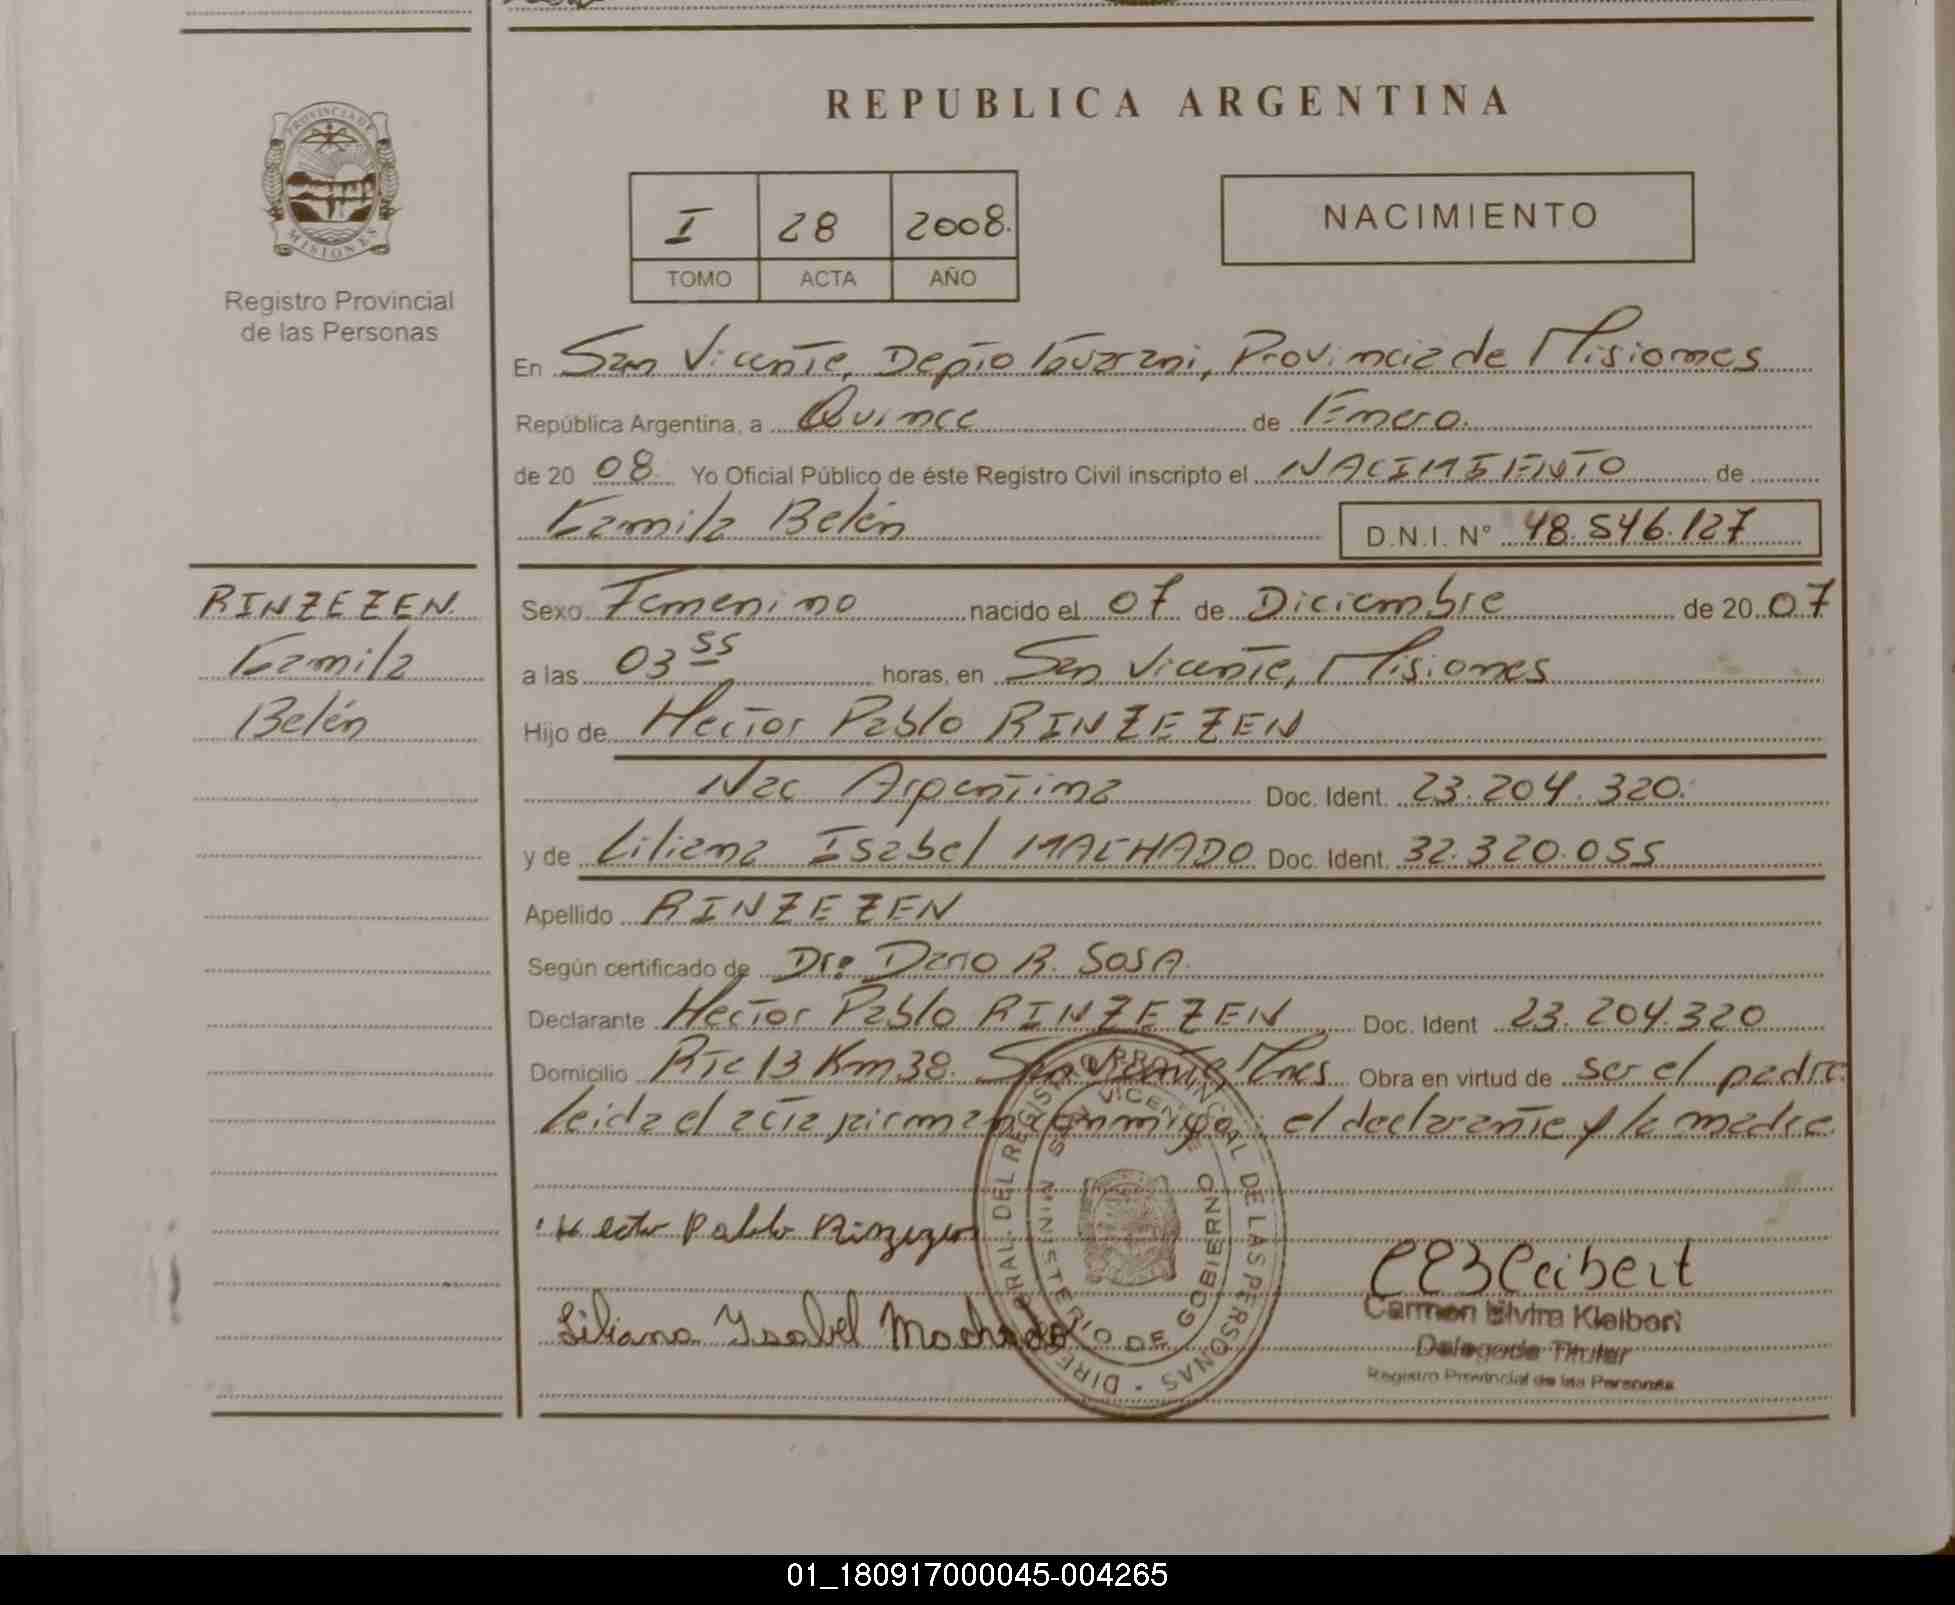 REPUBLICA ARGENTINA
PROVINCIA DE
MISIONES
Registro Provincial
de las Personas
I 28 2008.
TOMO ACTA AÑO
NACIMIENTO
En San Vicente, Depto Guarani, Provincia de Misiones
República Argentina, a Quince de Enero.
de 20 08. Yo Oficial Público de éste Registro Civil inscripto el NACIMIENTO de
Kamila Belén D.N.I. N° 48.546.127
RINZEZEN.
Kamila
Belén
Sexo Femenino nacido el 07 de Diciembre de 20 07
a las 03 55 horas, en San Vicente, Misiones
Hijo de Hector Pablo RINZEZEN
Nac Argentina Doc. Ident. 23.204.320.
y de Liliana Isabel MACHADO Doc. Ident. 32.320.055
Apellido RINZEZEN
Según certificado de Dr. Dario R. SOSA.
Declarante Hector Pablo RINZEZEN Doc. Ident 23.204.320
Domicilio Rte 13 Km 38. San Vicente, Mnes Obra en virtud de ser el padre
leida el acta firman conmigo: el declarante y la madre
Hector Pablo Rinzezen
Liliana Ysabel Machado
DIRE GRAL. DEL REGISTRO PROVINCIAL DE LAS PERSONAS
SAN VICENTE
MINISTERIO DE GOBIERNO
Carmen Elvira Kleibert
Delegada Titular
Registro Provincial de las Personas
01_180917000045-004265